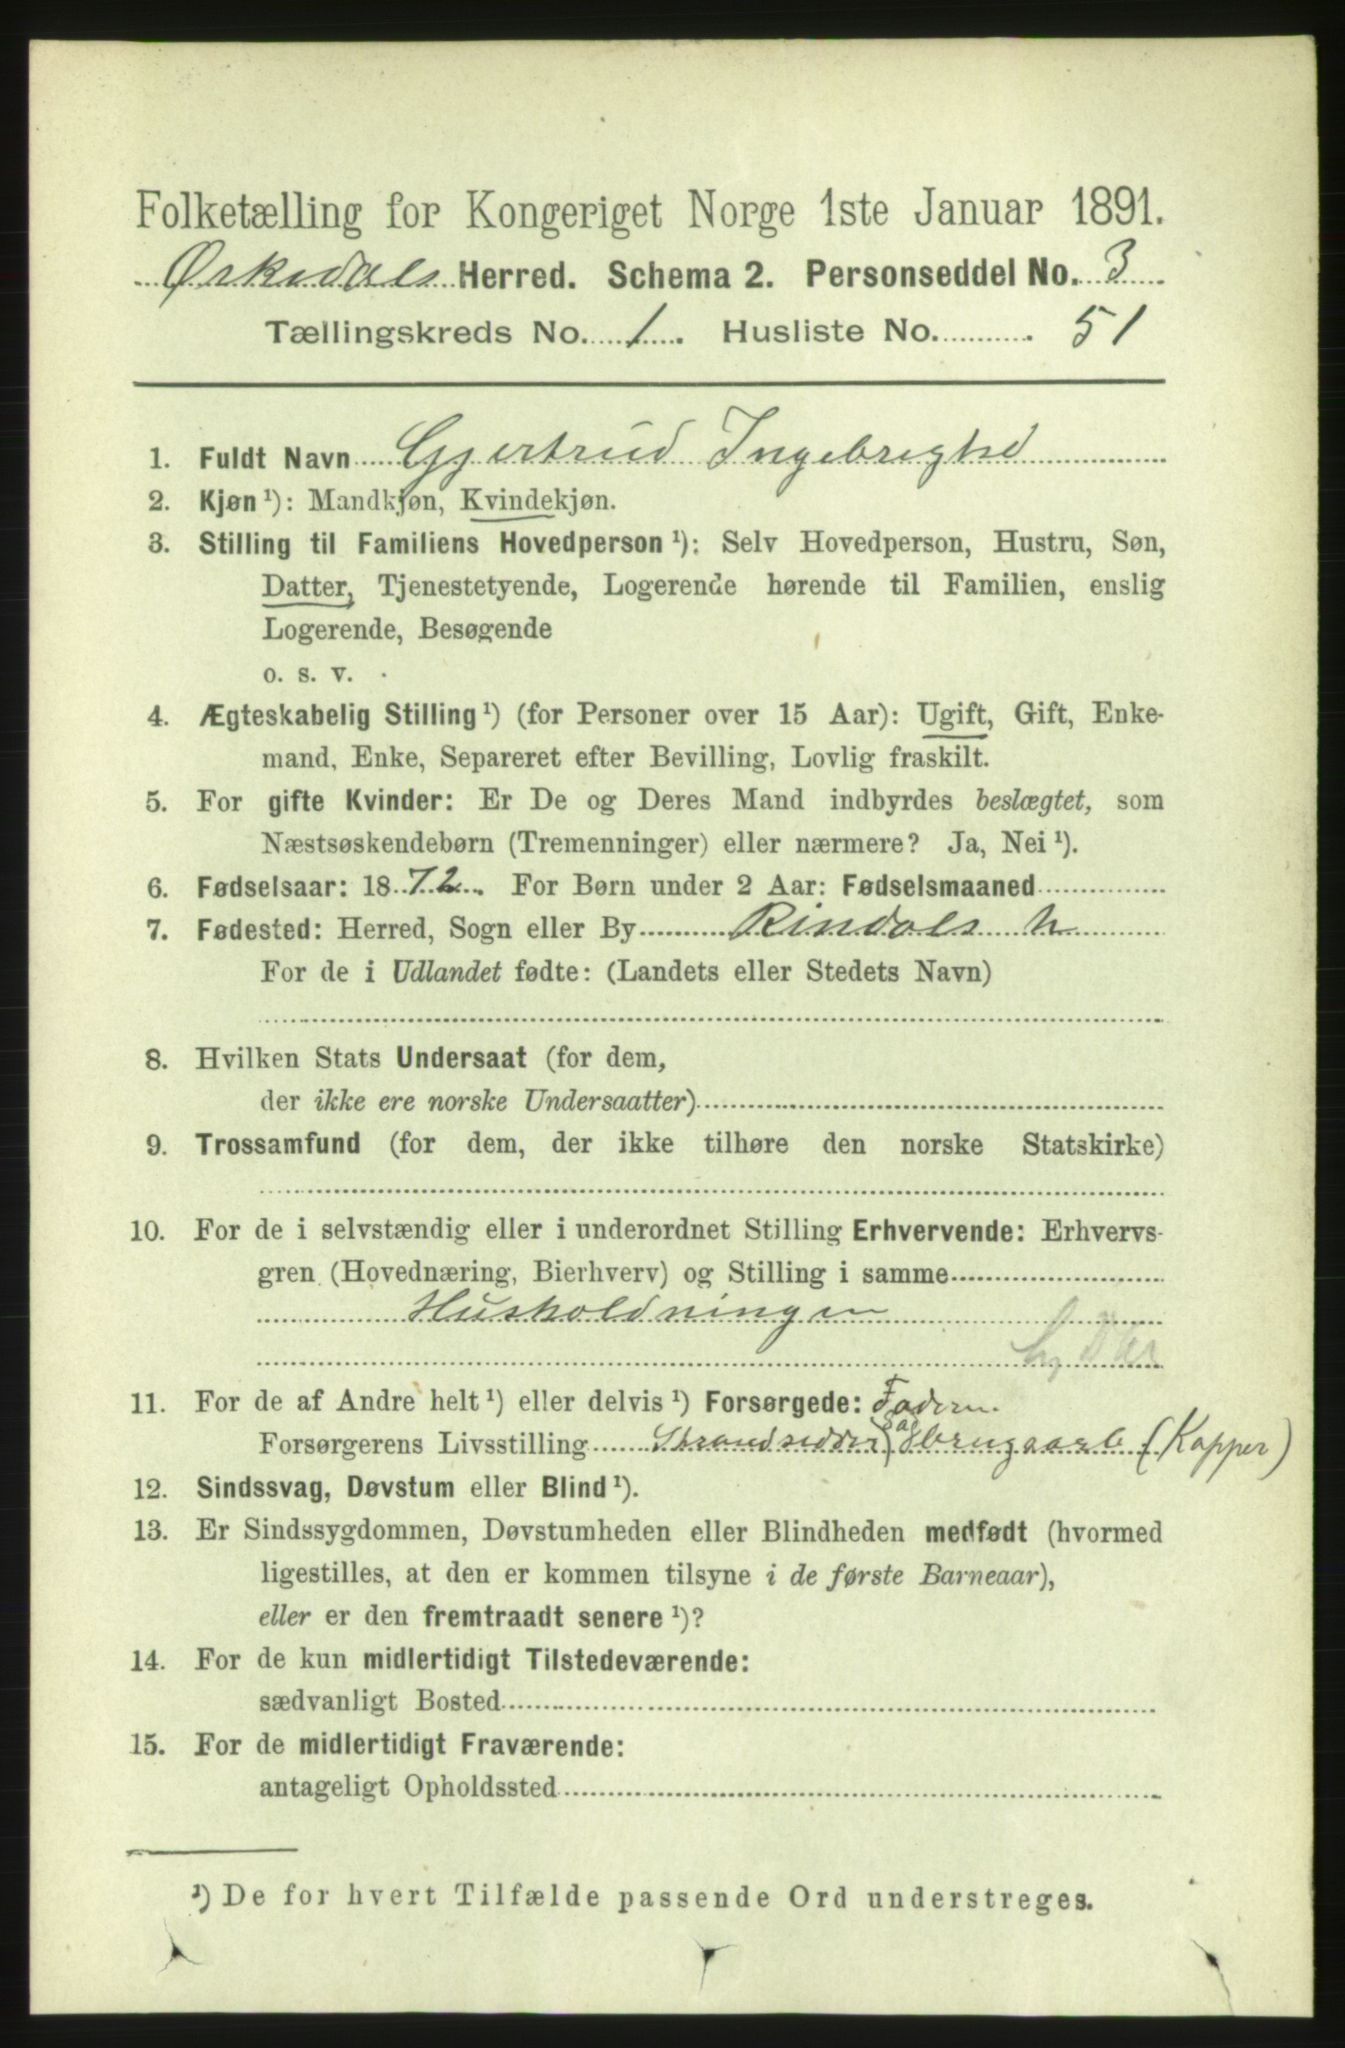 Folketælling for Kongeriget Norge 1ste Januar 1891.
Ørkedals Herred. Schema 2. Personseddel No. 3
Tællingskreds No. 1. Husliste No. 51
1. Fuldt Navn Gjertrud Ingebrigtsd
2. Kjøn ¹): Mandkjøn, Kvindekjøn.
3. Stilling til Familiens Hovedperson ¹): Selv Hovedperson, Hustru, Søn,
Datter, Tjenestetyende, Logerende hørende til Familien, enslig
Logerende, Besøgende
o. s. v.
4. Ægteskabelig Stilling ¹) (for Personer over 15 Aar): Ugift, Gift, Enke-
mand, Enke, Separeret efter Bevilling, Lovlig fraskilt.
5. For gifte Kvinder: Er De og Deres Mand indbyrdes beslægtet, som
Næstsøskendebørn (Tremenninger) eller nærmere? Ja, Nei ¹).
6. Fødselsaar: 1872. For Børn under 2 Aar: Fødselsmaaned
7. Fødested: Herred, Sogn eller By Rindals h
For de i Udlandet fødte: (Landets eller Stedets Navn)
8. Hvilken Stats Undersaat (for dem,
der ikke ere norske Undersaatter)
9. Trossamfund (for dem, der ikke tilhøre den norske Statskirke)
10. For de i selvstændig eller i underordnet Stilling Erhvervende: Erhvervs-
gren (Hovednæring, Bierhverv) og Stilling i samme
Husholdningen
11. For de af Andre helt ¹) eller delvis ¹) Forsørgede: Faderen
Forsørgerens Livsstilling Strandsidder og (Kapper)
12. Sindssvag, Døvstum eller Blind ¹).
13. Er Sindssygdommen, Døvstumheden eller Blindheden medfødt (hvormed
ligestilles, at den er kommen tilsyne i de første Barneaar),
eller er den fremtraadt senere ¹)?
14. For de kun midlertidigt Tilstedeværende:
sædvanligt Bosted
15. For de midlertidigt Fraværende:
antageligt Opholdssted
¹) De for hvert Tilfælde passende Ord understreges.